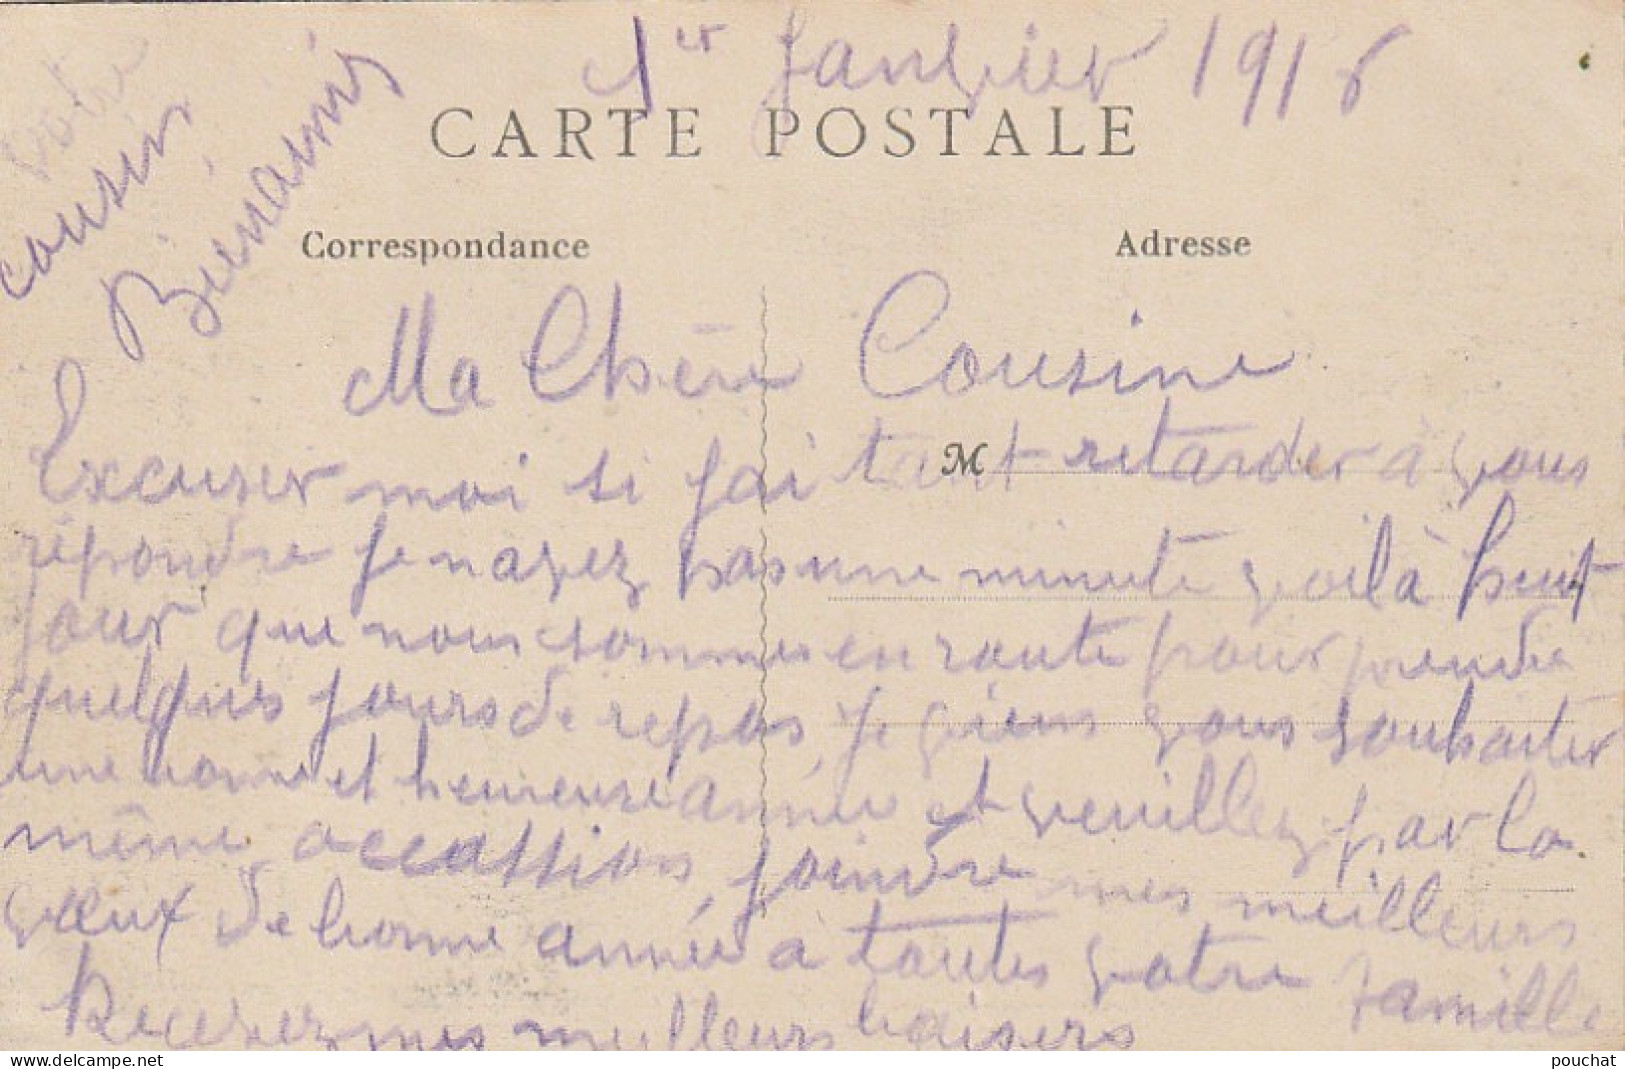 1er Janvier 1916
CARTE POSTALE
Correspondance
Adresse
Ma Chère Cousine
M
Excuser moi si jai tant retarder à vous
répondre je navez pas une minute voilà huit
jour que nous sommes en route pour prendre
quelques jours de repos, je viens vous souhaiter
une bonne et heureuse année et veuillez par la
même occassion joindre mes meilleurs
vœux de bonne année à toute votre famille
Recevez mes meilleurs baisers
votre
cousin
Bienaimis
pouchat